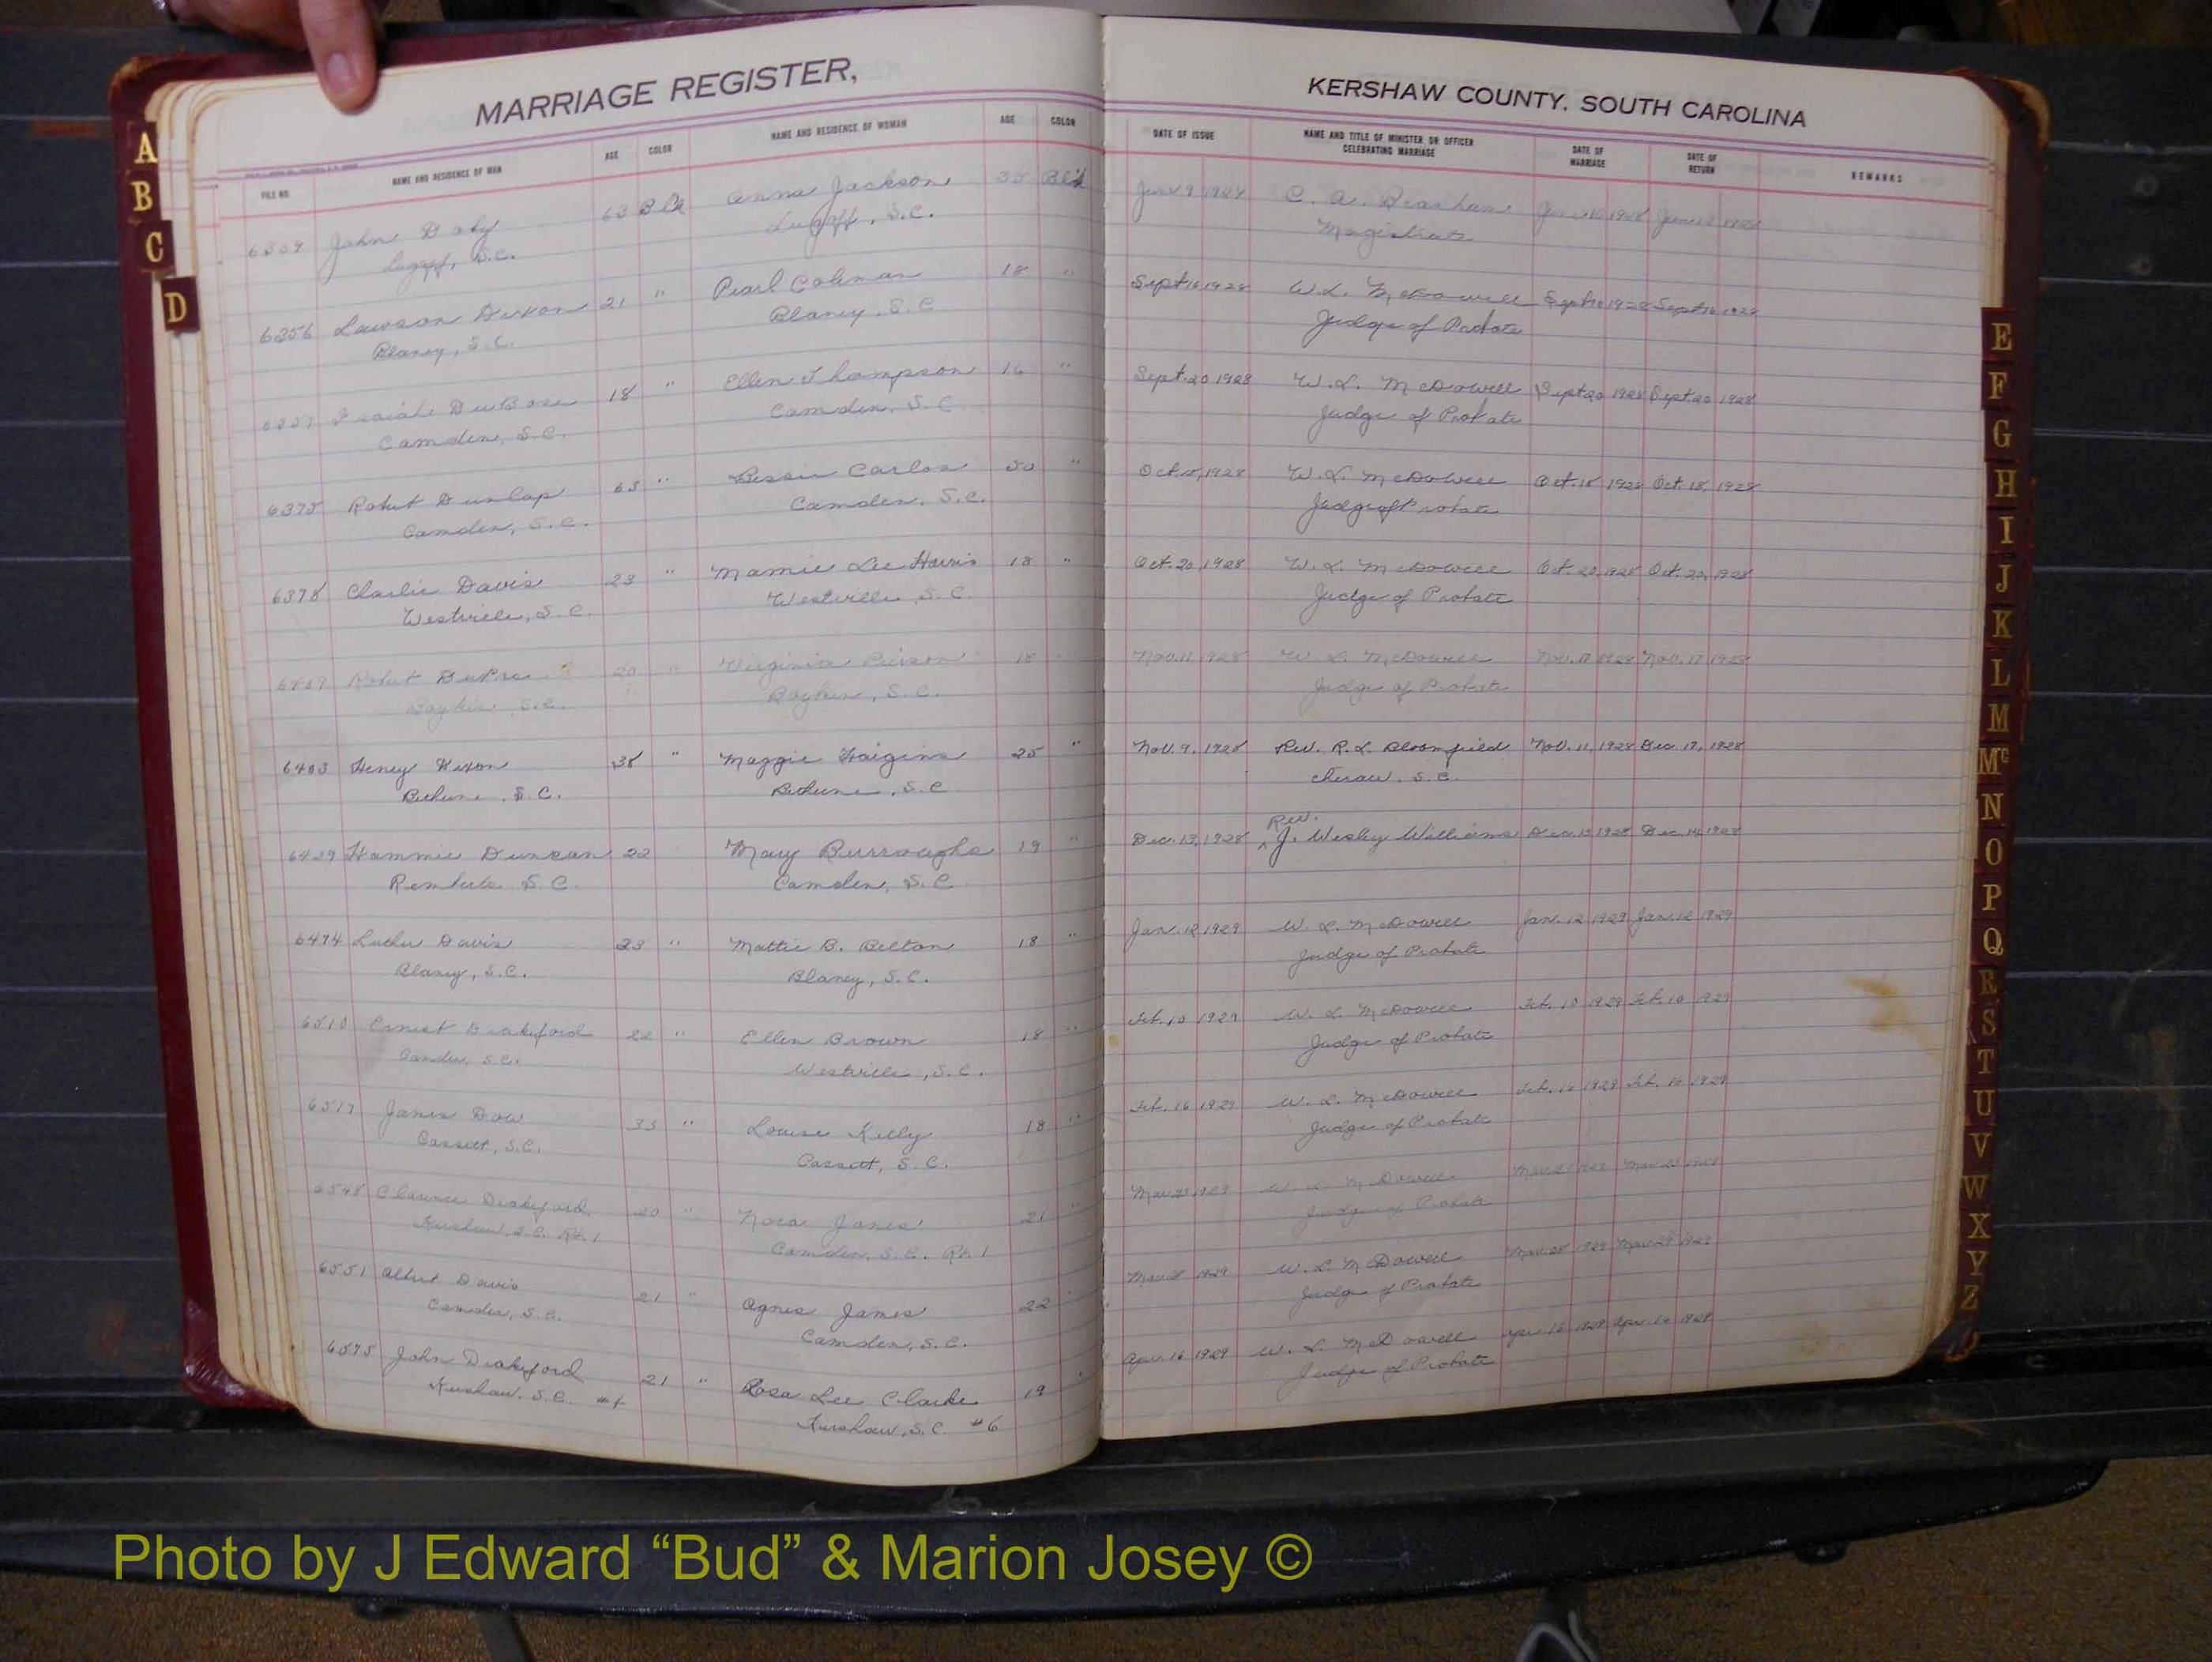 MARRIAGE REGISTER,
KERSHAW COUNTY, SOUTH CAROLINA
FILE NO. NAME AND RESIDENCE OF MAN AGE COLOR NAME AND RESIDENCE OF WOMAN AGE COLOR
DATE OF ISSUE NAME AND TITLE OF MINISTER OR OFFICER CELEBRATING MARRIAGE DATE OF MARRIAGE DATE OF RETURN REMARKS
6309 John Doby 63 Blk Anna Jackson 35 Blk 1928 C. A.
Lugoff, S.C. Lugoff, S.C. Magistrate
6356 Lawson Dixon 21 " Pearl Coleman 18 " Sept 16 1928 W. L. McDowell Sept 16 1928 Sept 16 1928
Blaney, S.C. Blaney, S.C. Judge of Probate
6357 Isaiah DuBose 18 " Ellen Thompson 16 " Sept. 20 1928 W. L. McDowell Sept 20 1928 Sept. 20 1928
Camden, S.C. Camden, S.C. Judge of Probate
6375 Robert Dunlap 63 " Bessie Carlos 50 " Oct. 18, 1928 W. L. McDowell Oct. 18 1928 Oct. 18, 1928
Camden, S.C. Camden, S.C. Judge of Probate
6378 Charlie Davis 23 " Mamie Lee Harris 18 " Oct. 20, 1928 W. L. McDowell Oct. 20, 1928 Oct. 22, 1928
Westville, S.C. Westville, S.C. Judge of Probate
Robert 20 " Virginia 18 1928 W. L. McDowell Nov. 17 1928 Nov. 17 1928
Boykin, S.C. Boykin, S.C. Judge of Probate
6403 Henry Dixon 38 " Maggie Haigins 25 " Nov. 9, 1928 Rev. R. L. Bloomfield Nov. 11, 1928 Dec. 17, 1928
Bethune, S.C. Bethune, S.C. Cheraw, S.C.
6429 Hammie Duncan 22 Mary Burroughs 19 " Dec. 13, 1928 Rev. J. Wesley Williams Dec. 13 1928 Dec. 14, 1928
S.C. Camden, S.C.
6474 Luther Davis 23 " Mattie B. Belton 18 " Jan. 12 1929 W. L. McDowell Jan. 12 1929 Jan. 12 1929
Blaney, S.C. Blaney, S.C. Judge of Probate
6510 Ernest Drakeford 22 " Ellen Brown 18 " Feb. 10 1929 W. L. McDowell Feb. 10 1929 Feb. 10 1929
Camden, S.C. Westville, S.C. Judge of Probate
James Dow 33 " Louise Kelly 18 " Feb. 16 1929 W. L. McDowell Feb. 16 1929 Feb. 16 1929
Cassett, S.C. Cassett, S.C. Judge of Probate
6548 Clarence Drakeford 20 " Nora James 21 " 1929 W. L. McDowell
Kershaw, S.C. Rt. 1 Camden, S.C. Rt. 1 Judge of Probate
6551 Albert Davis 21 " Agnes James 22 1929 W. L. McDowell 1929 Mar. 29 1929
Camden, S.C. Camden, S.C. Judge of Probate
6575 John Drakeford 21 " Rosa Lee Clarke 19 Apr. 16 1929 W. L. McDowell Apr. 16 1929 Apr. 16 1929
Kershaw, S.C. Kershaw, S.C. #6 Judge of Probate
A
B
C
D
E
F
G
H
I
J
K
L
M
Mc
N
O
P
Q
R
S
T
U
V
W
X
Y
Z
Photo by J Edward “Bud” & Marion Josey ©